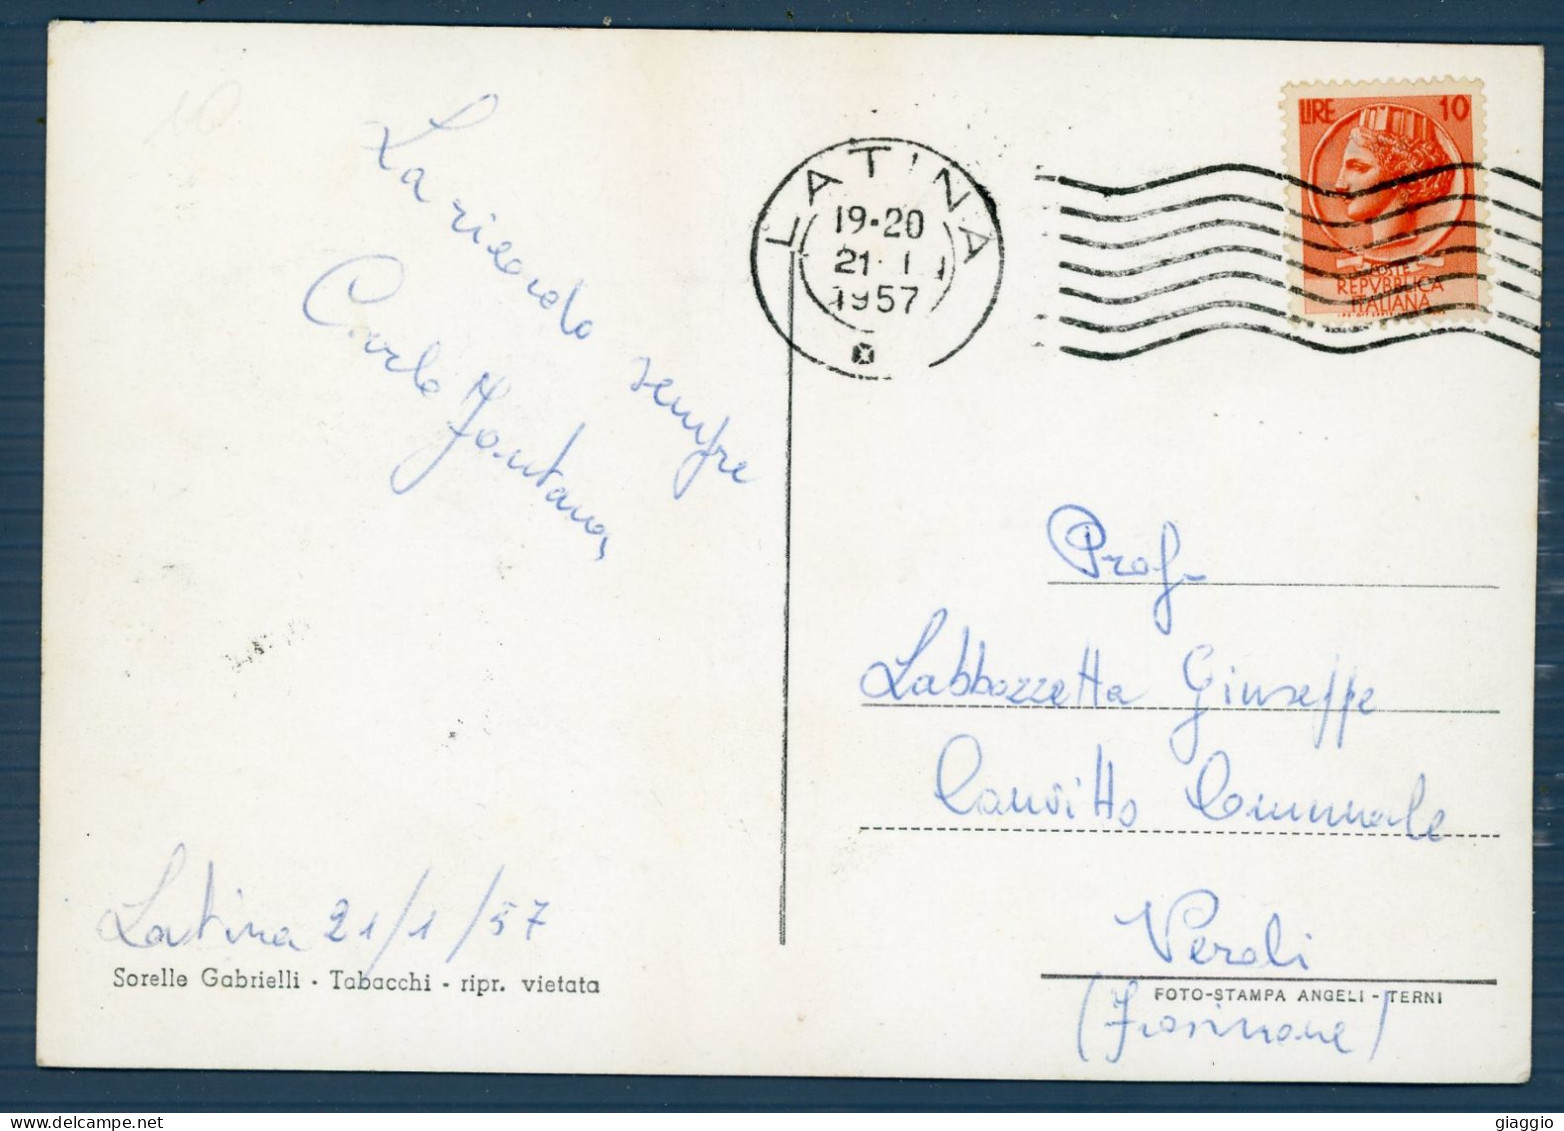 10
La ricordo sempre
Carlo Fontana
Latina 21/1/57
Sorelle Gabrielli - Tabacchi - ripr. vietata
LATINA
19-20
21·1
1957
LIRE 10
POSTE
REPVBBLICA
ITALIANA
Prof.
Labbozzetta Giuseppe
Convitto Comunale
Veroli
FOTO-STAMPA ANGELI - TERNI
(Frosinone)
giaggio